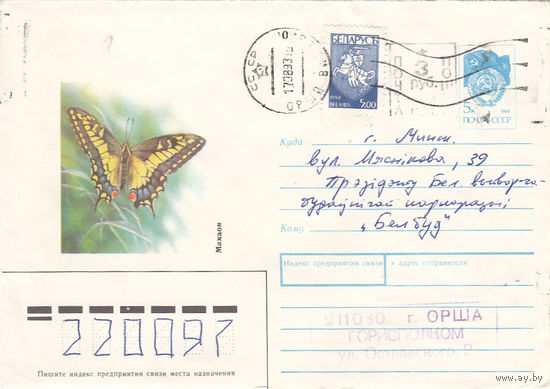 БЕЛАРУСЬ
1992 BELARUS 5.00
СССР
17 08 93 18
ОРША
ПОЧТА
3
руб.
5к
1988
ПОЧТА СССР
Махаон
Куда г. Минск
вул. Мяснікова, 39
Прэзідэнту Бел.
будаўнічай карпарацыі
Кому „Белбуд”
Индекс предприятия связи и адрес отправителя
211030 г. ОРША
ГОРИСПОЛКОМ
ул. Островского, 9
220097
Пишите индекс предприятия связи места назначения
www.ay.by